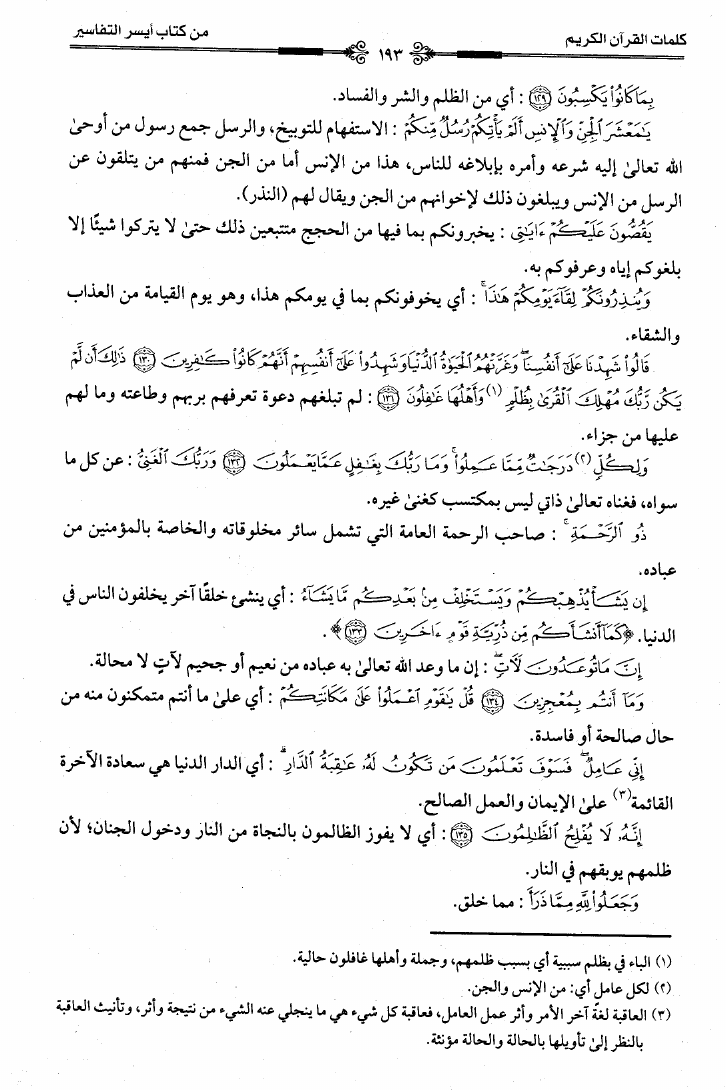 كلمات القرآن الكريم
١٩٣
من كتاب أيسر التفاسير
بِمَا كَانُوا۟ يَكْسِبُونَ ﴿١٢٩﴾ : أي من الظلم والشر والفساد.
يَـٰمَعْشَرَ ٱلْجِنِّ وَٱلْإِنسِ أَلَمْ يَأْتِكُمْ رُسُلٌ مِّنكُمْ : الاستفهام للتوبيخ، والرسل جمع رسول من أوحىٰ
الله تعالىٰ إليه شرعه وأمره بإبلاغه للناس، هذا من الإنس أما من الجن فمنهم من يتلقون عن
الرسل من الإنس ويبلغون ذلك لإخوانهم من الجن ويقال لهم (النذر).
يَقُصُّونَ عَلَيْكُمْ ءَايَـٰتِى : يخبرونكم بما فيها من الحجج متتبعين ذلك حتىٰ لا يتركوا شيئًا إلا
بلغوكم إياه وعرفوكم به.
وَيُنذِرُونَكُمْ لِقَآءَ يَوْمِكُمْ هَـٰذَا ۚ : أي يخوفونكم بما في يومكم هذا، وهو يوم القيامة من العذاب
والشقاء.
قَالُوا۟ شَهِدْنَا عَلَىٰٓ أَنفُسِنَا ۖ وَغَرَّتْهُمُ ٱلْحَيَوٰةُ ٱلدُّنْيَا وَشَهِدُوا۟ عَلَىٰٓ أَنفُسِهِمْ أَنَّهُمْ كَانُوا۟ كَـٰفِرِينَ ﴿١٣٠﴾ ذَٰلِكَ أَن لَّمْ
يَكُن رَّبُّكَ مُهْلِكَ ٱلْقُرَىٰ بِظُلْمٍ (١) وَأَهْلُهَا غَـٰفِلُونَ ﴿١٣١﴾ : لم تبلغهم دعوة تعرفهم بربهم وطاعته وما لهم
عليها من جزاء.
وَلِكُلٍّ (٢) دَرَجَـٰتٌ مِّمَّا عَمِلُوا۟ ۚ وَمَا رَبُّكَ بِغَـٰفِلٍ عَمَّا يَعْمَلُونَ ﴿١٣٢﴾ وَرَبُّكَ ٱلْغَنِىُّ : عن كل ما
سواه، فغناه تعالىٰ ذاتي ليس بمكتسب كغنىٰ غيره.
ذُو ٱلرَّحْمَةِ ۚ : صاحب الرحمة العامة التي تشمل سائر مخلوقاته والخاصة بالمؤمنين من
عباده.
إِن يَشَأْ يُذْهِبْكُمْ وَيَسْتَخْلِفْ مِنۢ بَعْدِكُم مَّا يَشَآءُ : أي ينشئ خلقًا آخر يخلفون الناس في
الدنيا. ﴿كَمَآ أَنشَأَكُم مِّن ذُرِّيَّةِ قَوْمٍ ءَاخَرِينَ ﴿١٣٣﴾﴾.
إِنَّ مَا تُوعَدُونَ لَـَٔاتٍ ۖ : إن ما وعد الله تعالىٰ به عباده من نعيم أو جحيم لآتٍ لا محالة.
وَمَآ أَنتُم بِمُعْجِزِينَ ﴿١٣٤﴾ قُلْ يَـٰقَوْمِ ٱعْمَلُوا۟ عَلَىٰ مَكَانَتِكُمْ : أي علىٰ ما أنتم متمكنون منه من
حال صالحة أو فاسدة.
إِنِّى عَامِلٌ ۖ فَسَوْفَ تَعْلَمُونَ مَن تَكُونُ لَهُۥ عَـٰقِبَةُ ٱلدَّارِ ۗ : أي الدار الدنيا هي سعادة الآخرة
القائمة(٣) علىٰ الإيمان والعمل الصالح.
إِنَّهُۥ لَا يُفْلِحُ ٱلظَّـٰلِمُونَ ﴿١٣٥﴾ : أي لا يفوز الظالمون بالنجاة من النار ودخول الجنان؛ لأن
ظلمهم يوبقهم في النار.
وَجَعَلُوا۟ لِلَّهِ مِمَّا ذَرَأَ : مما خلق.
(١) الباء في بظلم سببية أي بسبب ظلمهم، وجملة وأهلها غافلون حالية.
(٢) لكل عامل أي: من الإنس والجن.
(٣) العاقبة لغةً آخر الأمر وأثر عمل العامل، فعاقبة كل شيء هي ما ينجلي عنه الشيء من نتيجة وأثر، وتأنيث العاقبة
بالنظر إلىٰ تأويلها بالحالة والحالة مؤنثة.